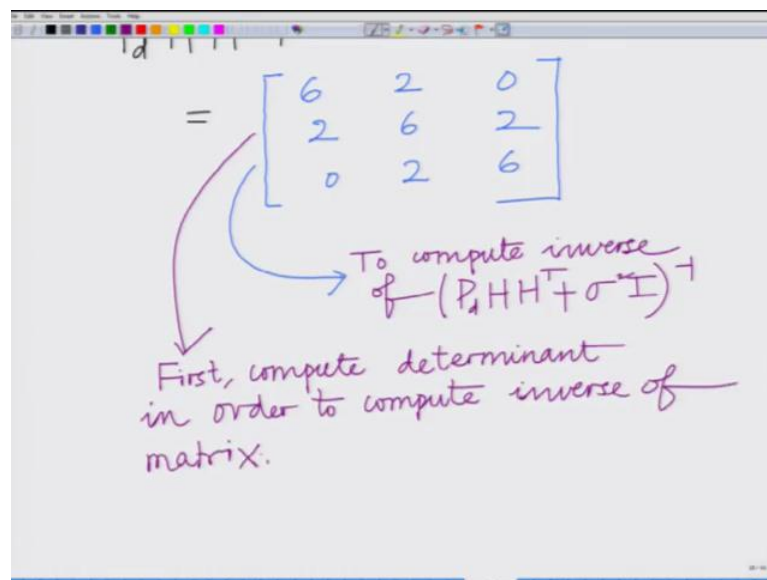 d
= [ 6 2 0
2 6 2
0 2 6 ]
To compute inverse
of (P_d H H^T + σ² I)^-1
First, compute determinant
in order to compute inverse of
matrix.